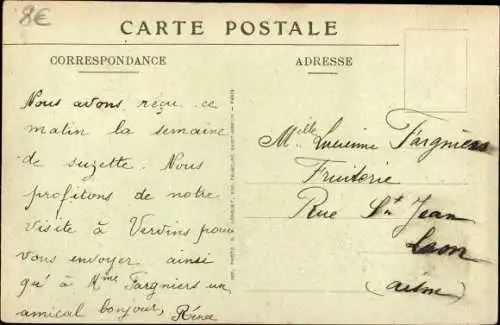 8€
CARTE POSTALE
CORRESPONDANCE
ADRESSE
Nous avons reçu ce
matin la semaine
de suzette. Nous
profitons de notre
visite à Vervins pour
vous envoyer ainsi
qu'à Mme Fargniers un
amical bonjour, Rénée
Melle Lucienne Fargniers
Fruiterie
Rue St Jean
Laon
(aisne)